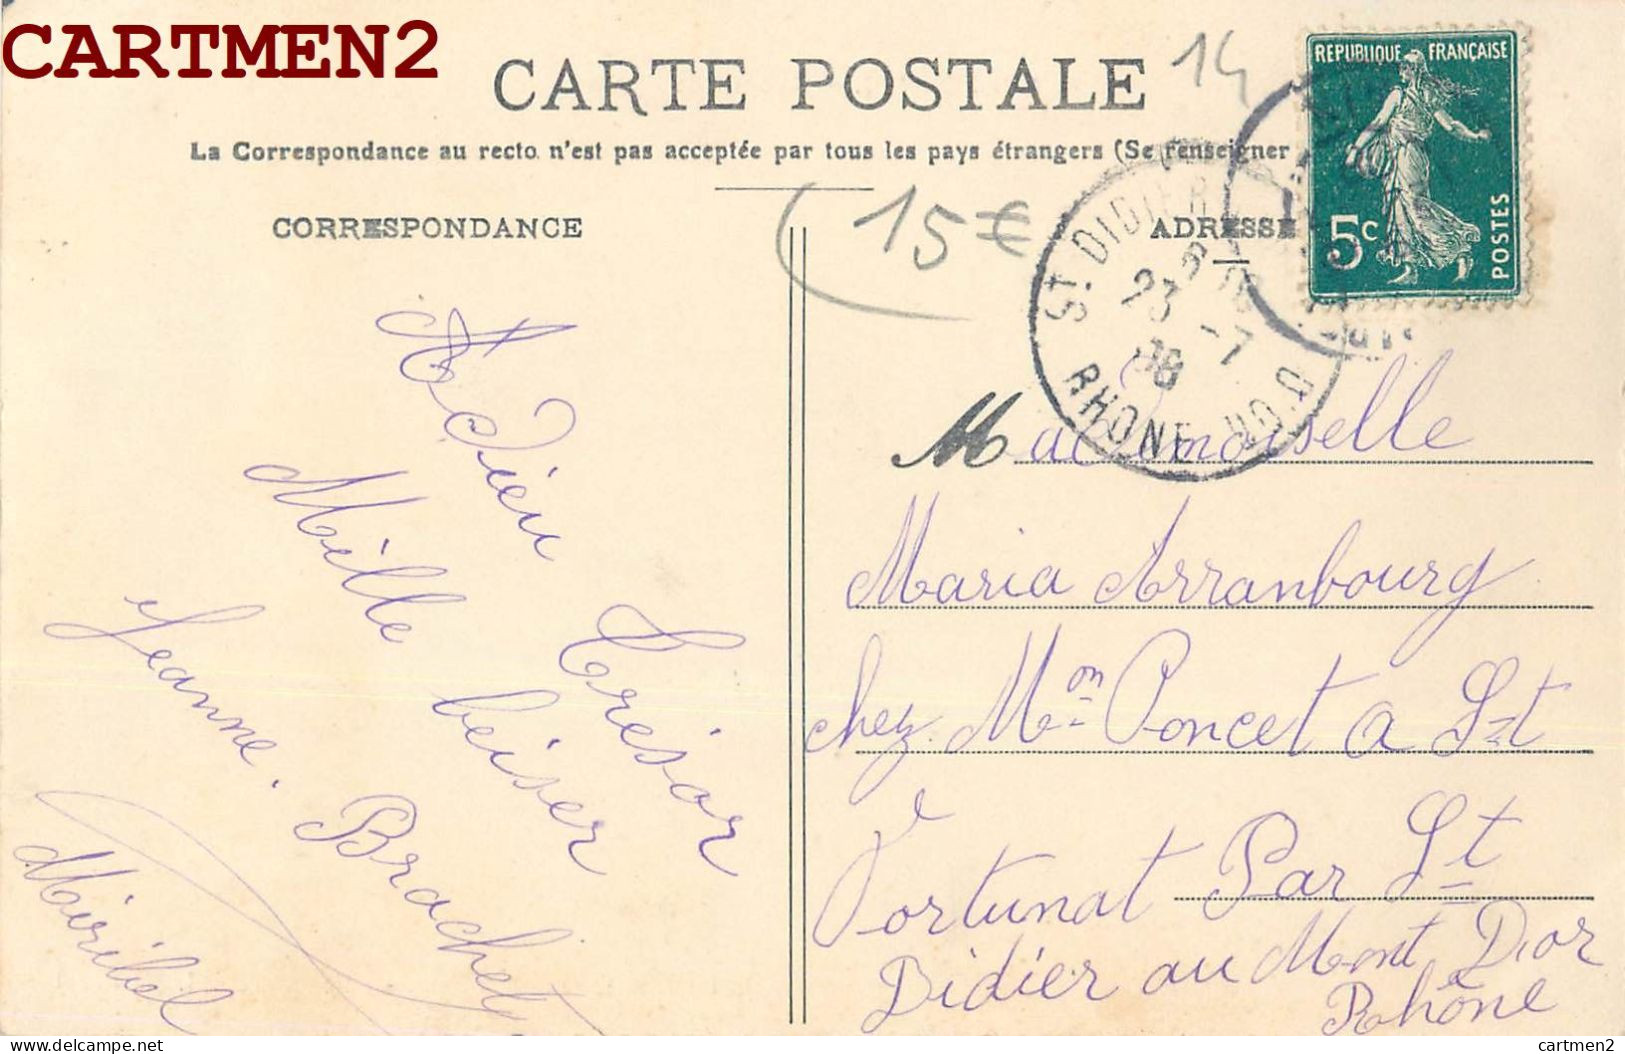 CARTMEN2
CARTE POSTALE
14
REPUBLIQUE FRANÇAISE
5c
POSTES
La Correspondance au recto n'est pas acceptée par tous les pays étrangers (Se renseigner
CORRESPONDANCE
15 €
ADRESSE
ST. DIDIER
23 -7
08
RHONE
Adieu Trésor
Mille beiser
Jeanne. Brachet
Miribel
Mademoiselle
Maria Arranbourg
chez Mon Poncet a St
Fortunat Par St
Didier au Mont Dor
Rhône
www.delcampe.net
cartmen2